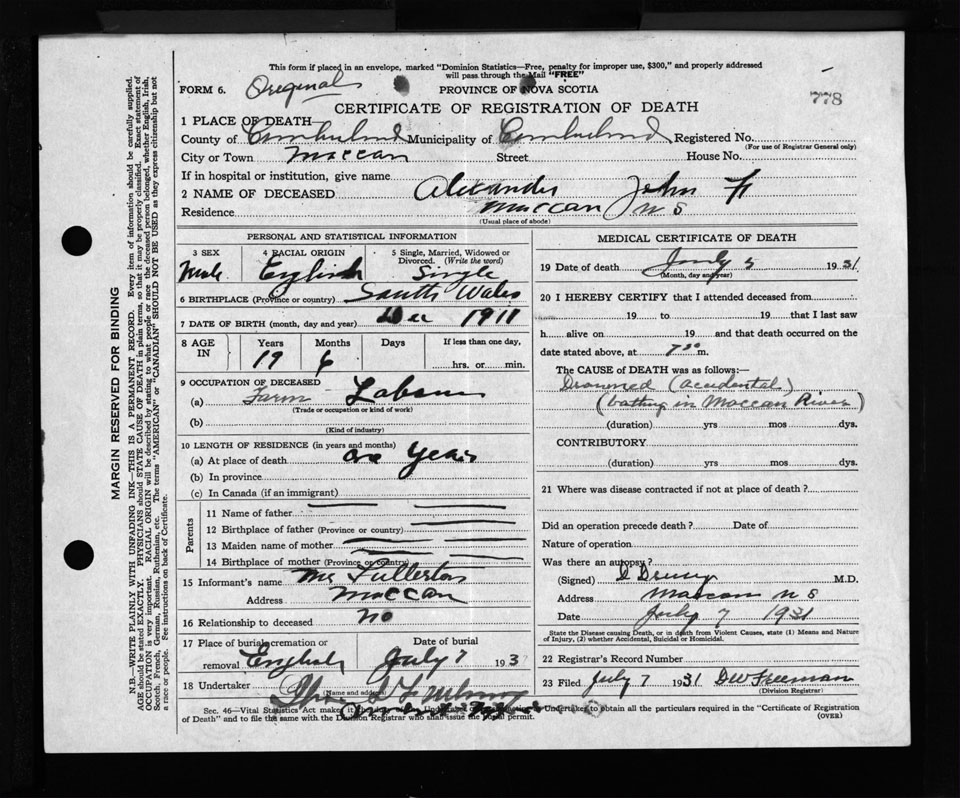 This form if placed in an envelope, marked "Dominion Statistics—Free, penalty for improper use, $300," and properly addressed
will pass through the Mail "FREE"
FORM 6. Original PROVINCE OF NOVA SCOTIA
778
CERTIFICATE OF REGISTRATION OF DEATH
1 PLACE OF DEATH
County of Cumberland Municipality of Cumberland Registered No.
(For use of Registrar General only)
City or Town Maccan Street House No.
If in hospital or institution, give name
2 NAME OF DECEASED Alexander John F
Residence Maccan N S
(Usual place of abode)
PERSONAL AND STATISTICAL INFORMATION
3 SEX 4 RACIAL ORIGIN 5 Single, Married, Widowed or Divorced. (Write the word)
Male English Single
6 BIRTHPLACE (Province or country) South Wales
7 DATE OF BIRTH (month, day and year) Dec 1911
8 AGE IN Years Months Days If less than one day,
19 6 hrs. or min.
9 OCCUPATION OF DECEASED
(a) Farm Laborer
(Trade or occupation or kind of work)
(b)
(Kind of industry)
10 LENGTH OF RESIDENCE (in years and months)
(a) At place of death one Year
(b) In province
(c) In Canada (if an immigrant)
Parents
11 Name of father
12 Birthplace of father (Province or country)
13 Maiden name of mother
14 Birthplace of mother (Province or country)
15 Informant's name Mr Fullerton
Address Maccan
16 Relationship to deceased no
17 Place of burial, cremation or removal Date of burial
English July 7 193
18 Undertaker
(Name and address)
MEDICAL CERTIFICATE OF DEATH
19 Date of death July 5 1931
(Month, day and year)
20 I HEREBY CERTIFY that I attended deceased from
19 to 19 that I last saw
h alive on 19 and that death occurred on
date stated above, at 7 30 m.
The CAUSE of DEATH was as follows:—
Drowned (accidental)
(bathing in Maccan River)
(duration) yrs mos dys.
CONTRIBUTORY
(duration) yrs mos dys.
21 Where was disease contracted if not at place of death?
Did an operation precede death? Date of
Nature of operation
Was there an autopsy?
(Signed) M.D.
Address Maccan N S
Date July 7 1931
State the Disease causing Death, or in death from Violent Causes, state (1) Means and Nature
of Injury, (2) whether Accidental, Suicidal or Homicidal.
22 Registrar's Record Number
23 Filed July 7 1931 DW Freeman
(Division Registrar)
Sec. 46—Vital Statistics Act makes it the Undertaker to obtain all the particulars required in the "Certificate of Registration
of Death" and to file the same with the Division Registrar who shall issue the permit.
(OVER)
MARGIN RESERVED FOR BINDING
N.B.—WRITE PLAINLY WITH UNFADING INK—THIS IS A PERMANENT RECORD. Every item of information should be carefully supplied.
AGE should be stated EXACTLY. PHYSICIANS should STATE CAUSE OF DEATH in plain terms, so that it may be properly classified. Exact statement of
OCCUPATION is very important. RACIAL ORIGIN will be described by stating to what people or race the deceased person belonged, whether English, Irish,
Scotch, French, German, Russian, Ruthenian, etc. The terms "AMERICAN" or "CANADIAN" SHOULD NOT BE USED as they express citizenship but not
a race or people. See instructions on back of Certificate.